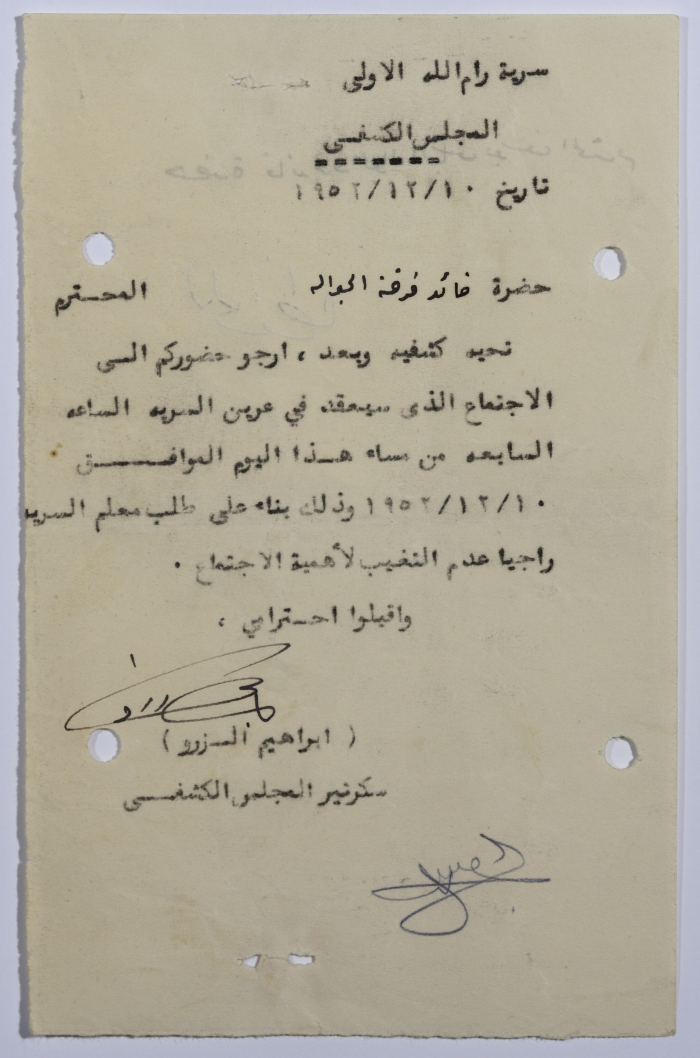 سرية رام الله الاولى
المجلس الكشفسي
تاريخ ١٩٥٢/١٢/١٠
حضرة قائد فرقة الجواله المحسترم
تحيه كشفيه وبعد ، ارجو حضوركم السى
الاجتماع الذى سيعقد في عرين السريه الساعه
السابعه من مساء هــذا اليوم الموافـــــق
١٩٥٢/١٢/١٠ وذلك بناء على طلب معلم السريه
راجيا عدم التغيب لأهمية الاجتماع .
واقبلوا احسترامي ،
( ابراهيم السزرو )
سكرتير المجلس الكشفـــى